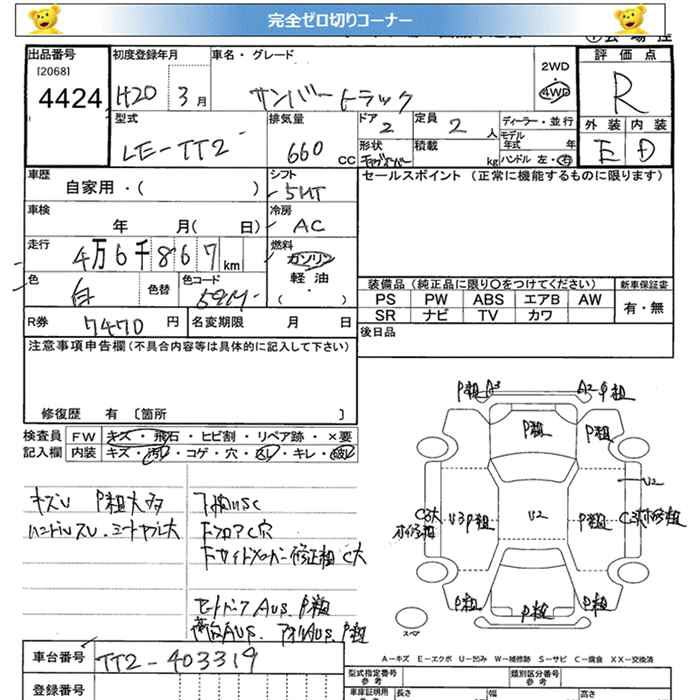 完全ゼロ切りコーナー
出品番号 初度登録年月 車名・グレード 評価点
[2068]
4424 H20 3月 サンバートラック 2WD・4WD R
型式 排気量 ドア 定員 ディーラー・並行 外装 内装
LE-TT2- 660cc 2 2人 モデル年式 年 E D
形状 積載 kg ハンドル 左・右
車歴 シフト セールスポイント(正常に機能するものに限ります)
自家用・( ) 5MT
車検 冷房
年 月( 日) AC
走行 燃料
4万6千867km ガソリン
色 色替 色コード 軽油
白 ( )
装備品(純正品に限り〇をつけてください) 新車保証書
PS PW ABS エアB AW 有・無
SR ナビ TV カワ
R券 7470円 名変期限 月 日 後日品
注意事項申告欄(不具合内容等は具体的に記入して下さい)
修復歴 有 〔箇所 〕
検査員 FW キズ・飛石・ヒビ割・リペア跡・×要
記入欄 内装 キズ・汚レ・コゲ・穴・・キレ・破レ
キズU P粗大多
ハンドルスレ・シートヤブレ大
下廻USC
FフロアC穴
修正粗 C大
AUS P粗
AUS. アオリAUS. P粗
P粗 A3 A2 P粗
P粗 P粗
U2
C3大 U3P粗 U2 P粗
P粗 P粗 P粗
スペア
A-キズ E-エクボ U-凹み W-補修跡 S-サビ C-腐食 XX-交換済
車台番号 TT2-403319
型式指定番号 参考 類別区分番号 参考
登録番号 車庫証明用 長さ 幅 高さ